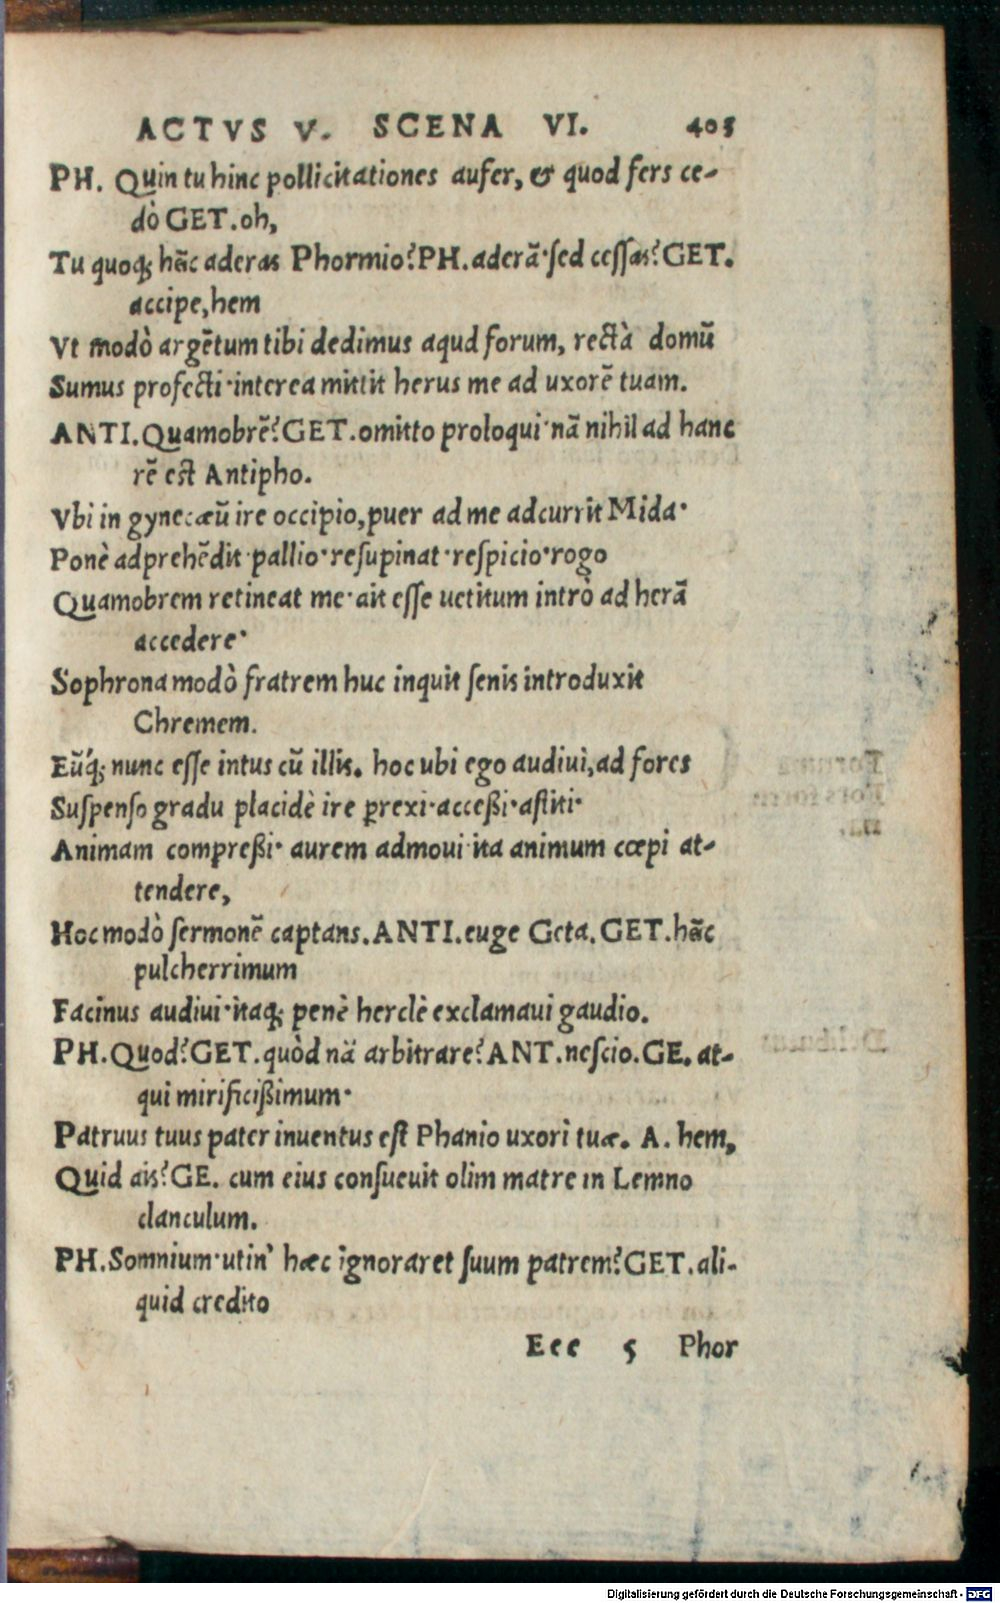 ACTVS V. SCENA VI. 405
PH. Quin tu hinc pollicitationes aufer, & quod fers ce-
dò GET. oh,
Tu quoq; hãc aderas Phormio? PH. aderã· sed cessas? GET.
accipe, hem
Vt modò argẽtum tibi dedimus aqud forum, rectà domũ
Sumus profecti· interea mittit herus me ad uxorẽ tuam.
ANTI. Quamobrẽ? GET. omitto proloqui· nã nihil ad hanc
rẽ est Antipho.
Vbi in gynecæũ ire occipio, puer ad me adcurrit Mida·
Ponè adprehẽdit· pallio· resupinat· respicio· rogo
Quamobrem retineat me· ait esse uetitum intrò ad herã
accedere·
Sophrona modò fratrem huc inquit senis introduxit
Chremem.
Eũq́; nunc esse intus cũ illis. hoc ubi ego audiui, ad fores
Suspenso gradu placidè ire ꝑrexi· acceßi· astiti·
Animam compreßi· aurem admoui· ita animum cœpi at-
tendere,
Hoc modò sermonẽ captans. ANTI. euge Geta. GET. hãc
pulcherrimum
Facinus audiui· itaq; penè herclè exclamaui gaudio.
PH. Quod? GET. quòd nã arbitrare? ANT. nescio. GE. at-
qui mirificißimum·
Patruus tuus pater inuentus est Phanio uxori tuæ. A. hem,
Quid ais? GE. cum eius consueuit olim matre in Lemno
clanculum.
PH. Somnium· utin' hæc ignoraret suum patrem? GET. ali-
quid credito
Eee 5 Phor
Digitalisierung gefördert durch die Deutsche Forschungsgemeinschaft - DFG